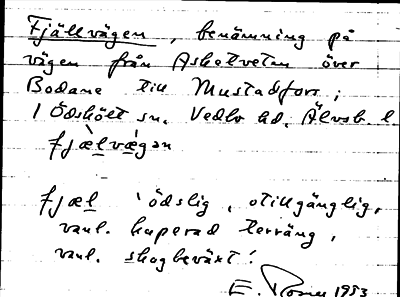 Fjällvägen, benämning på
vägen från Askotvetan över
Bodane till Mustadfors,
i Ödskölt sn. Vedbo hd. Älvsb. l
fjæ̀lvægən
fjæl 'ödslig, otillgänglig,
vanl. kuperad terräng,
vanl. skogbeväxt'.
E. 1983